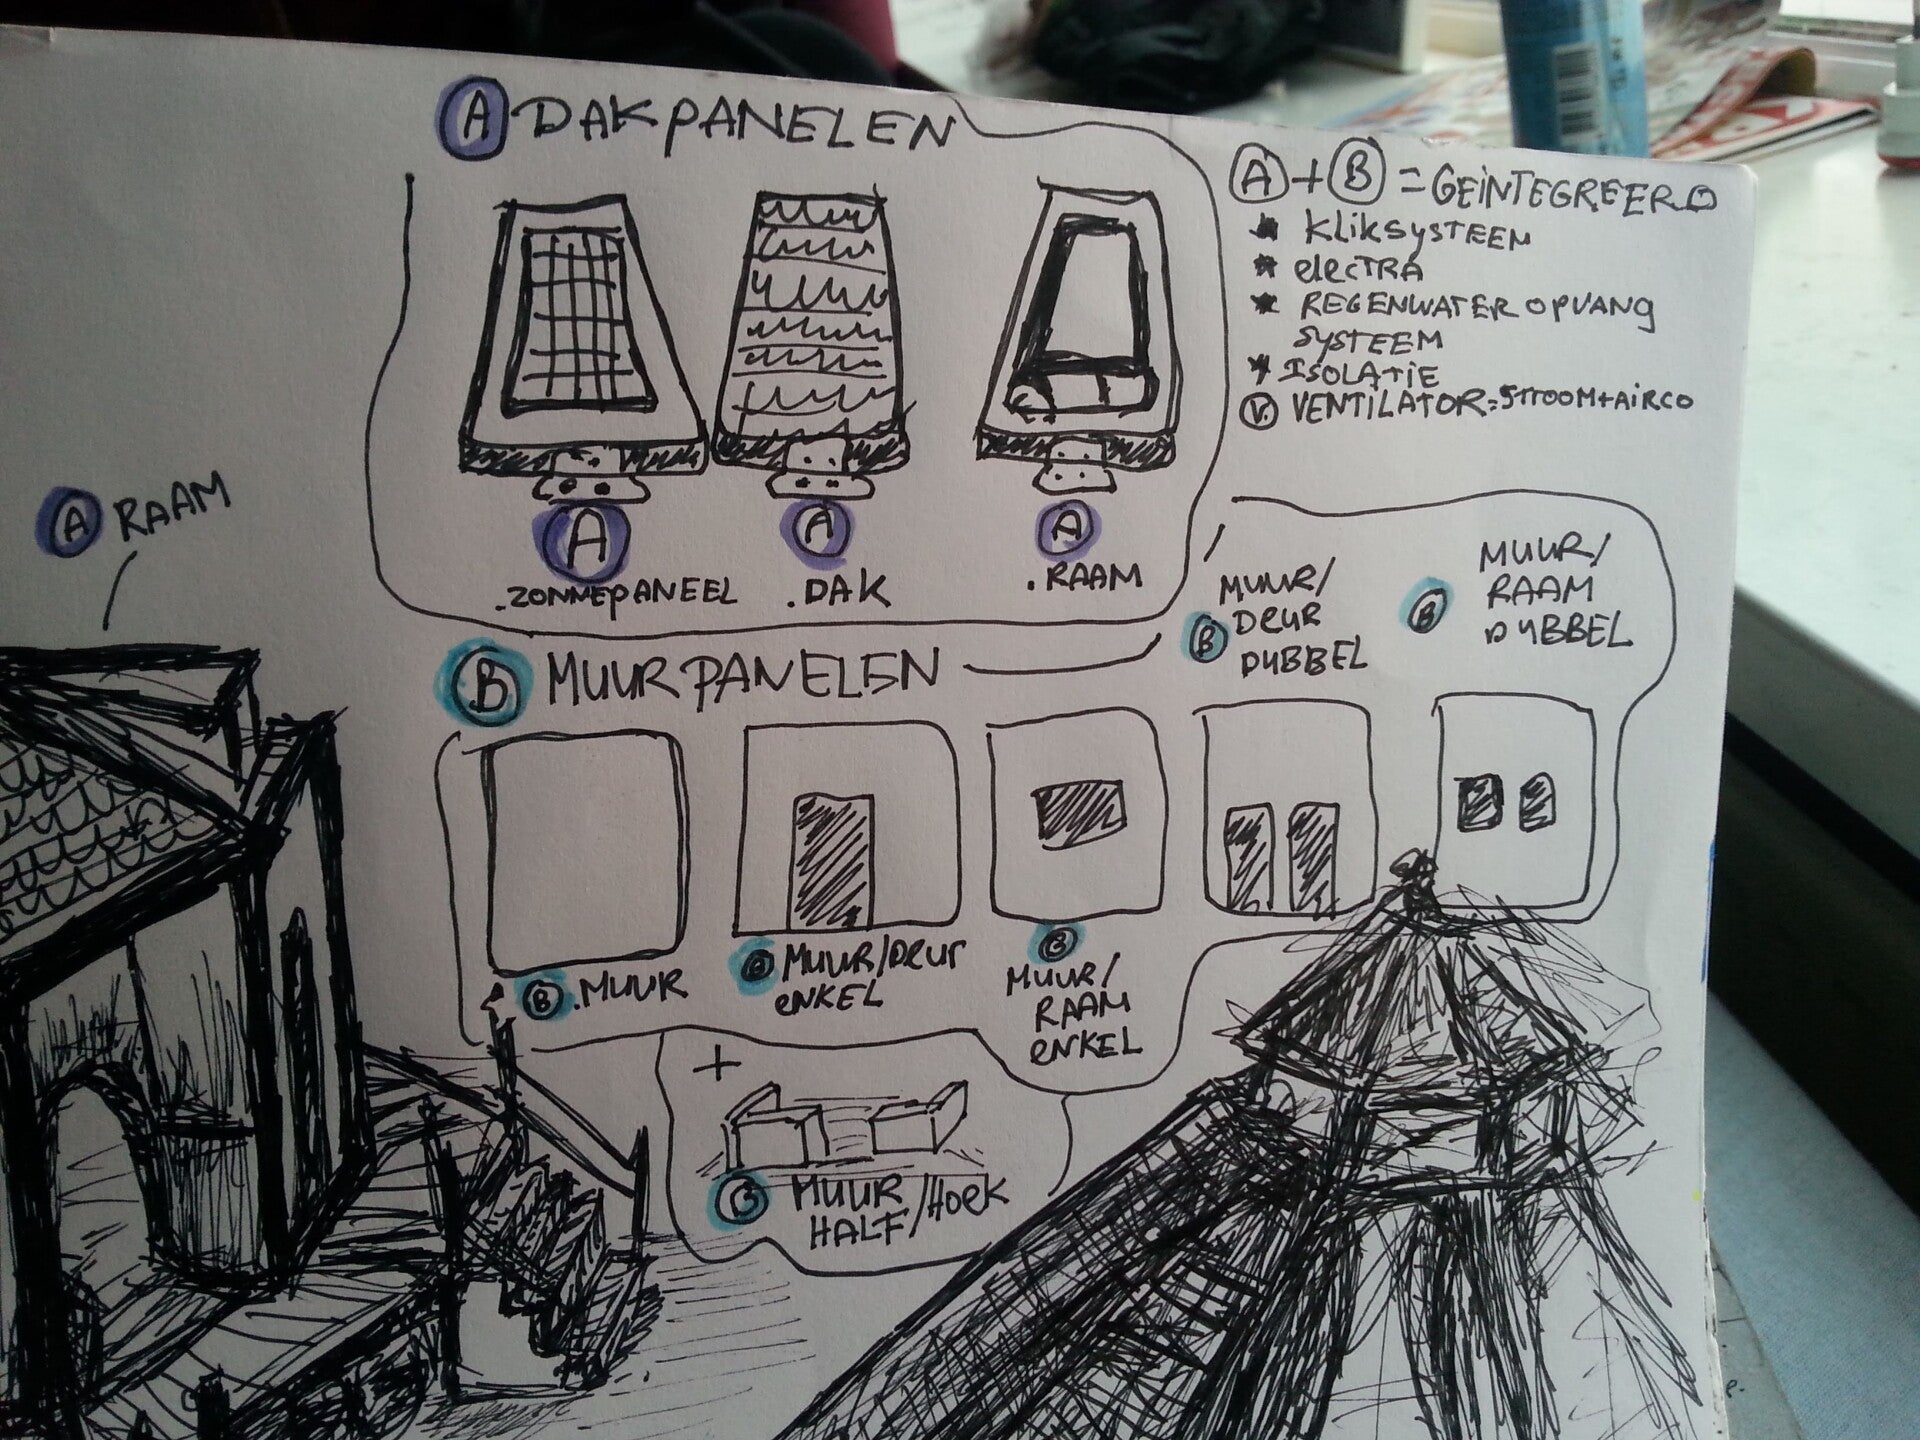 A DAKPANELEN
A + B = GEINTEGREERD
* KLIKSYSTEEM
* ELECTRA
* REGENWATER OPVANG
SYSTEEM
* ISOLATIE
V. VENTILATOR=STROOM+AIRCO
A RAAM
A
.ZONNEPANEEL
A
.DAK
A
.RAAM
B MUURPANELEN
B MUUR/
DEUR
DUBBEL
B MUUR/
RAAM
DUBBEL
B .MUUR
B MUUR/DEUR
ENKEL
B
MUUR/
RAAM
ENKEL
+
B MUUR
HALF/HOEK